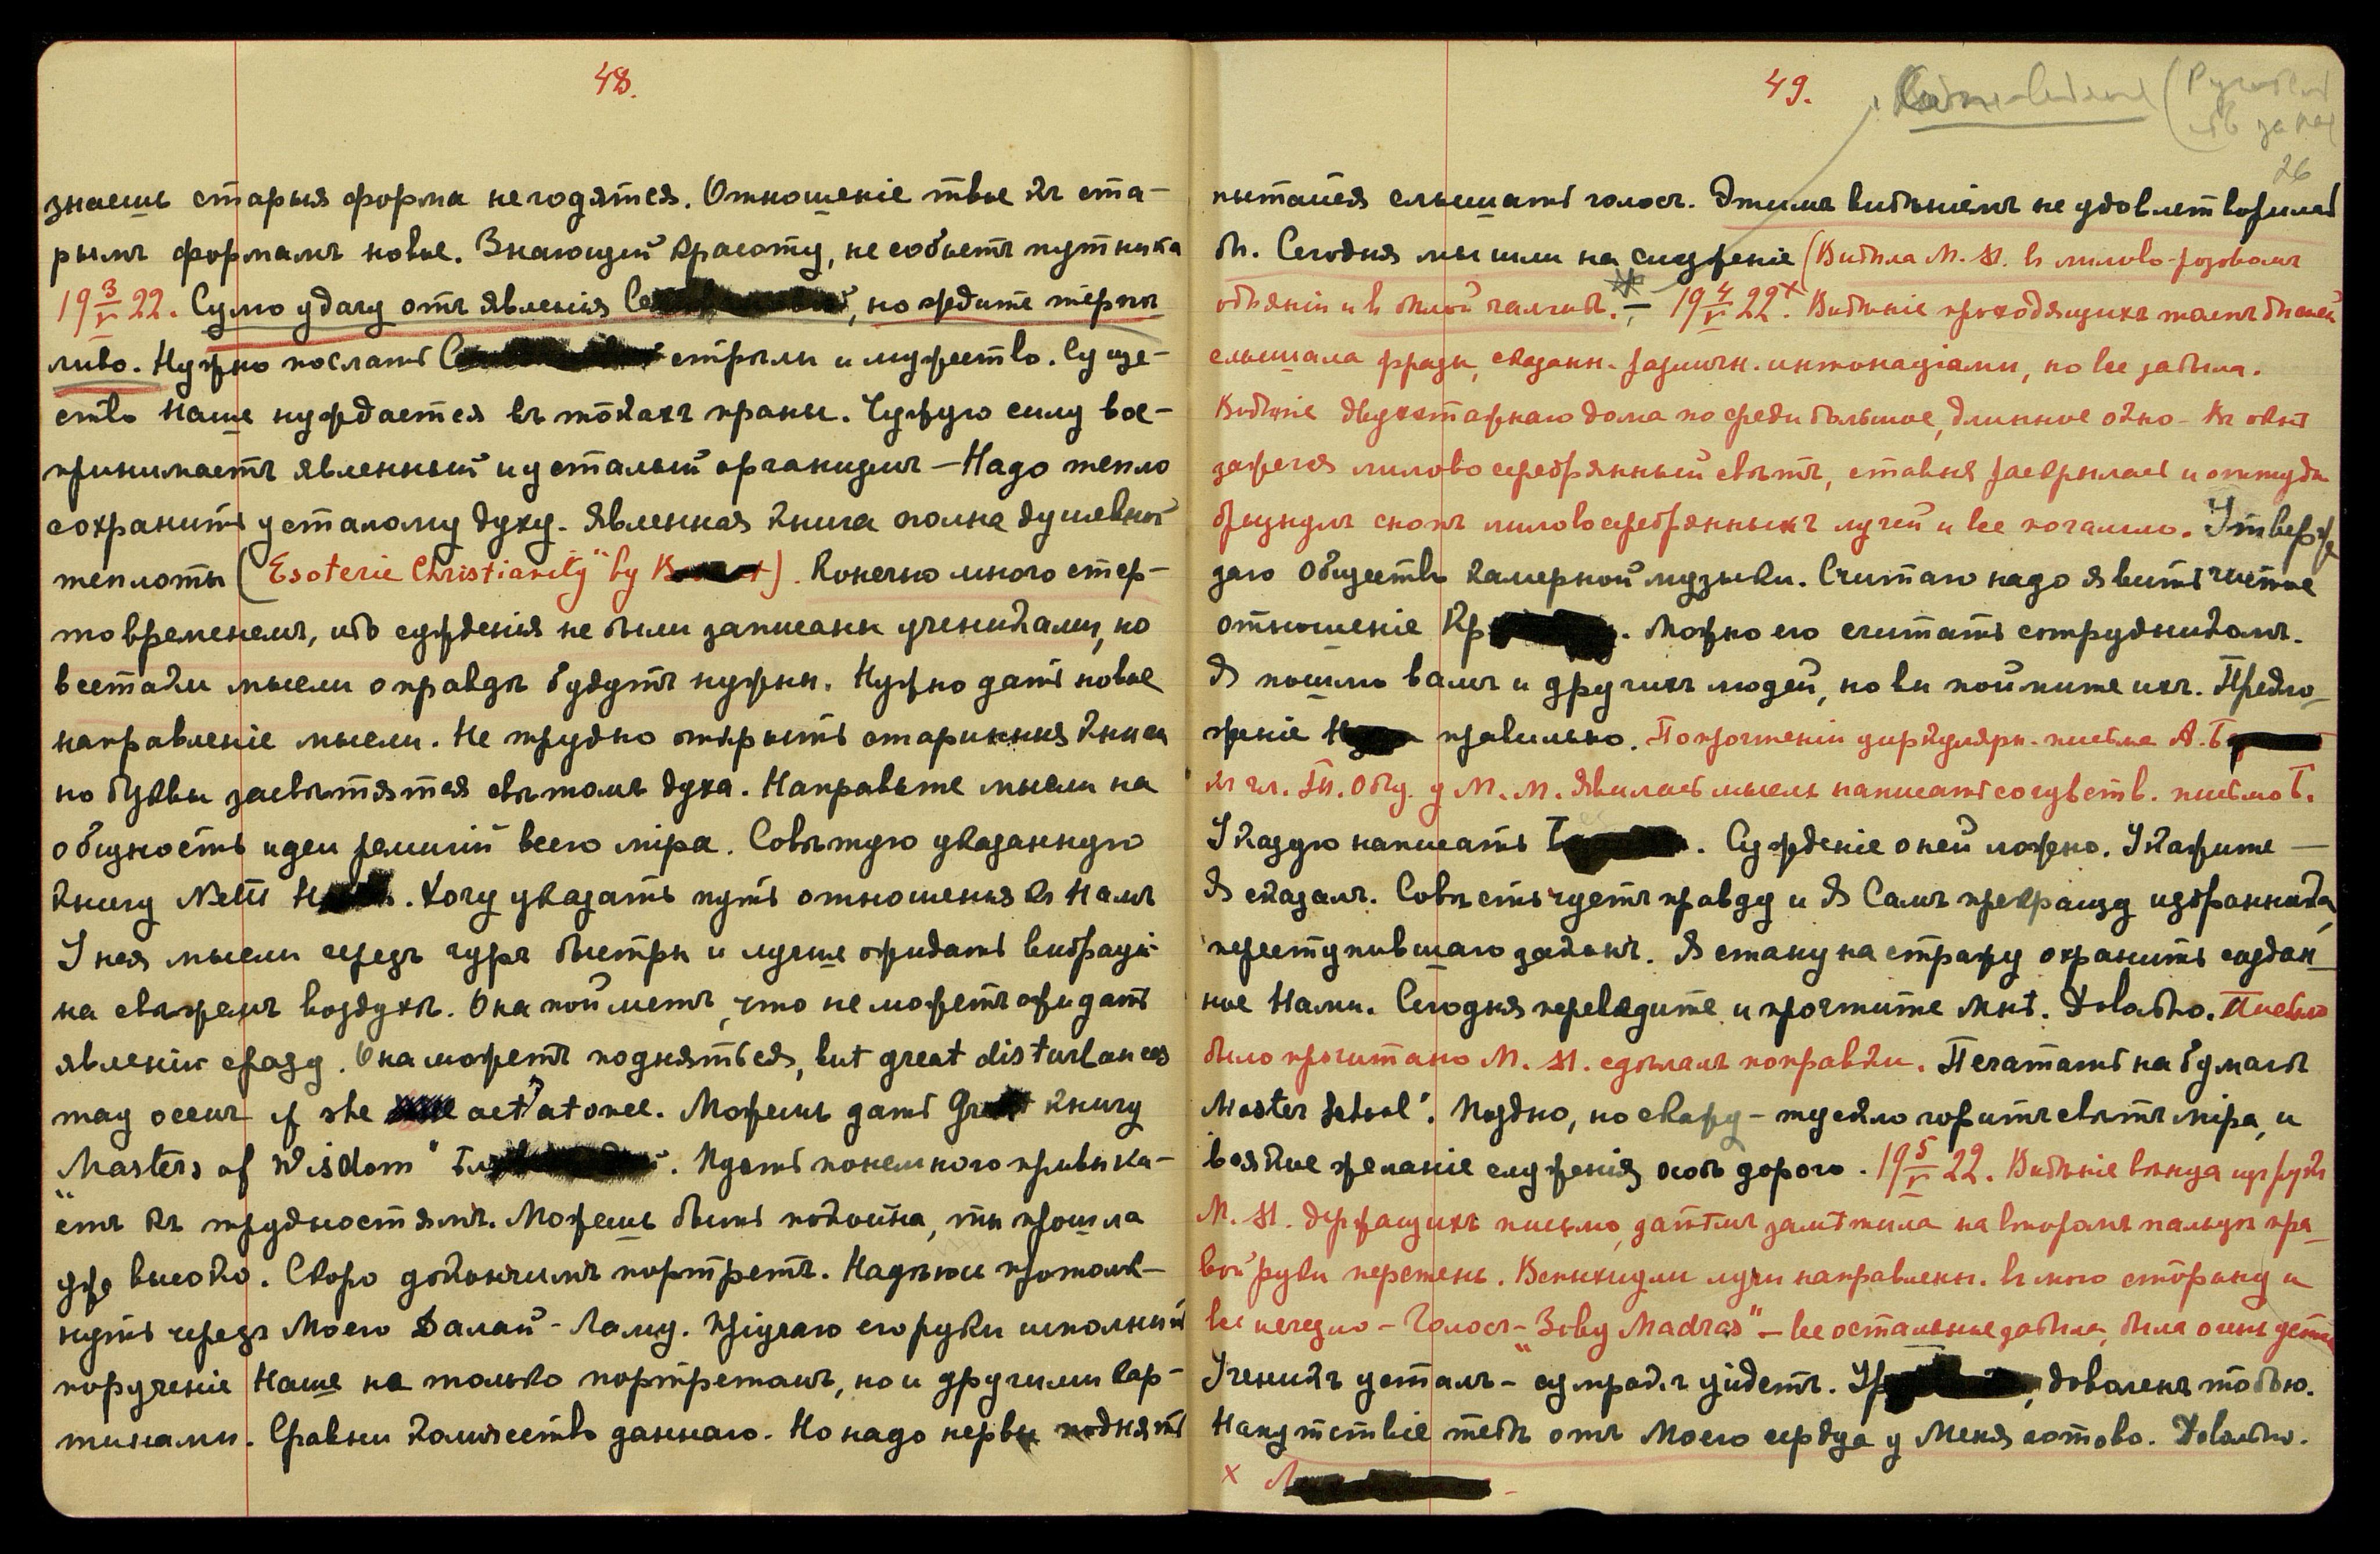 48.
знаешь старыя форма негодятся. Отношеніе твое къ ста-
рымъ формамъ новое. Знающій Красоту, не собьетъ путника
19 3/V 22. Сулю удачу отъ явленія, но ждите терпѣ
ливо. Нужно послать стрѣлы и мужество. Суще-
ство Наше нуждается въ токахъ праны. Чужую силу вос-
принимаетъ явленный и усталый организмъ — Надо тепло
сохранить усталому духу. Явленная книга полна душевной
теплоты (Esoteric Christianity" by). Конечно много стер-
то временемъ, ибо сужденія не были записаны учениками, но
всетаки мысли о правдѣ будутъ нужны. Нужно дать новое
направленіе мысли. Не трудно открыть старинныя книги
но буквы засвѣтятся свѣтомъ духа. Направьте мысли на
общность идеи религій всего міра. Совѣтую указанную
книгу Netti. Хочу указать путь отношенія къ Намъ
У нея мысли черезъ чуръ быстры и лучше ожидать вибрацій
на свѣжемъ воздухѣ. Она пойметъ, что не можетъ ожидать
явленій сразу. Она можетъ подняться, but great disturbances
may occur if she act at once. Можешь дать книгу
"Masters of Wisdom". Идетъ понемногу привыка-
етъ къ трудностямъ. Можешь быть покойна, ты прошла
уже высоко. Скоро докончимъ портретъ. Надѣюсь протолк-
нуть черезъ Моего Далай-Ламу. Пріучаю его руки исполнить
порученіе Наше не только портретомъ, но и другими кар-
тинами. Сравни количество даннаго. Но надо нервы поднять
49.
26
пытайся слышать голосъ. Этимъ видѣніемъ не удовлетворилась
бы. Сегодня мы шли на служеніе (Видѣла М. М. въ лилово-розовомъ
одѣяніи и въ бѣлой чалмѣ. — 19 4/V 22 x. Видѣніе проходящихъ
слышала фразы, сказан. различн. интонаціями, но все забыла.
Видѣніе двухэтажнаго дома по среди большое, длинное окно — въ окнѣ
зажегся лилово серебрянный свѣтъ, ставня раскрылась и оттуда
брызнулъ снопъ лиловосеребрянныхъ лучей и все погасло. Утверж
даю Общество Камерной музыки. Считаю надо явить чистое
отношеніе Кр. Можно его считать сотрудникомъ.
Я пошлю вамъ и другихъ людей, но вы поймите ихъ. Предло-
женіе правильно. По прочтеніи циркулярн. письма А. Б
къ чл. Т.. Общ. у М. М. явилась мысль написать сочувств. письмо Б.
Указую написать Б. Сужденіе о ней ложно. Укажите —
Я сказалъ. Совѣсть чуетъ правду и Я Самъ прекращу избранника,
переступившаго законъ. Я стану на стражу охранить создан-
ное Нами. Сегодня переведите и прочтите Мнѣ. Довольно. Письмо
было прочитано М. М. сдѣлалъ поправки. Печатать на бумагѣ
Master School". Поздно, но скажу — тускло горитъ свѣтъ міра, и
всякое желаніе служенія особ дорого. 19 5/V 22. Видѣніе
М. М. держащихъ письмо, затѣмъ замѣтила на второмъ пальцѣ пра-
вой руки перстень. Вспыхнули лучи направлены. въ мою сторону и
все исчезло — Голосъ — "Зову Madras" — все остальное забыла, была очень
Ученикъ усталъ — сумракъ уйдетъ. Ур, доволенъ тобою.
Напутствіе тебѣ отъ Моего сердца у Меня готово. Довольно.
x Л